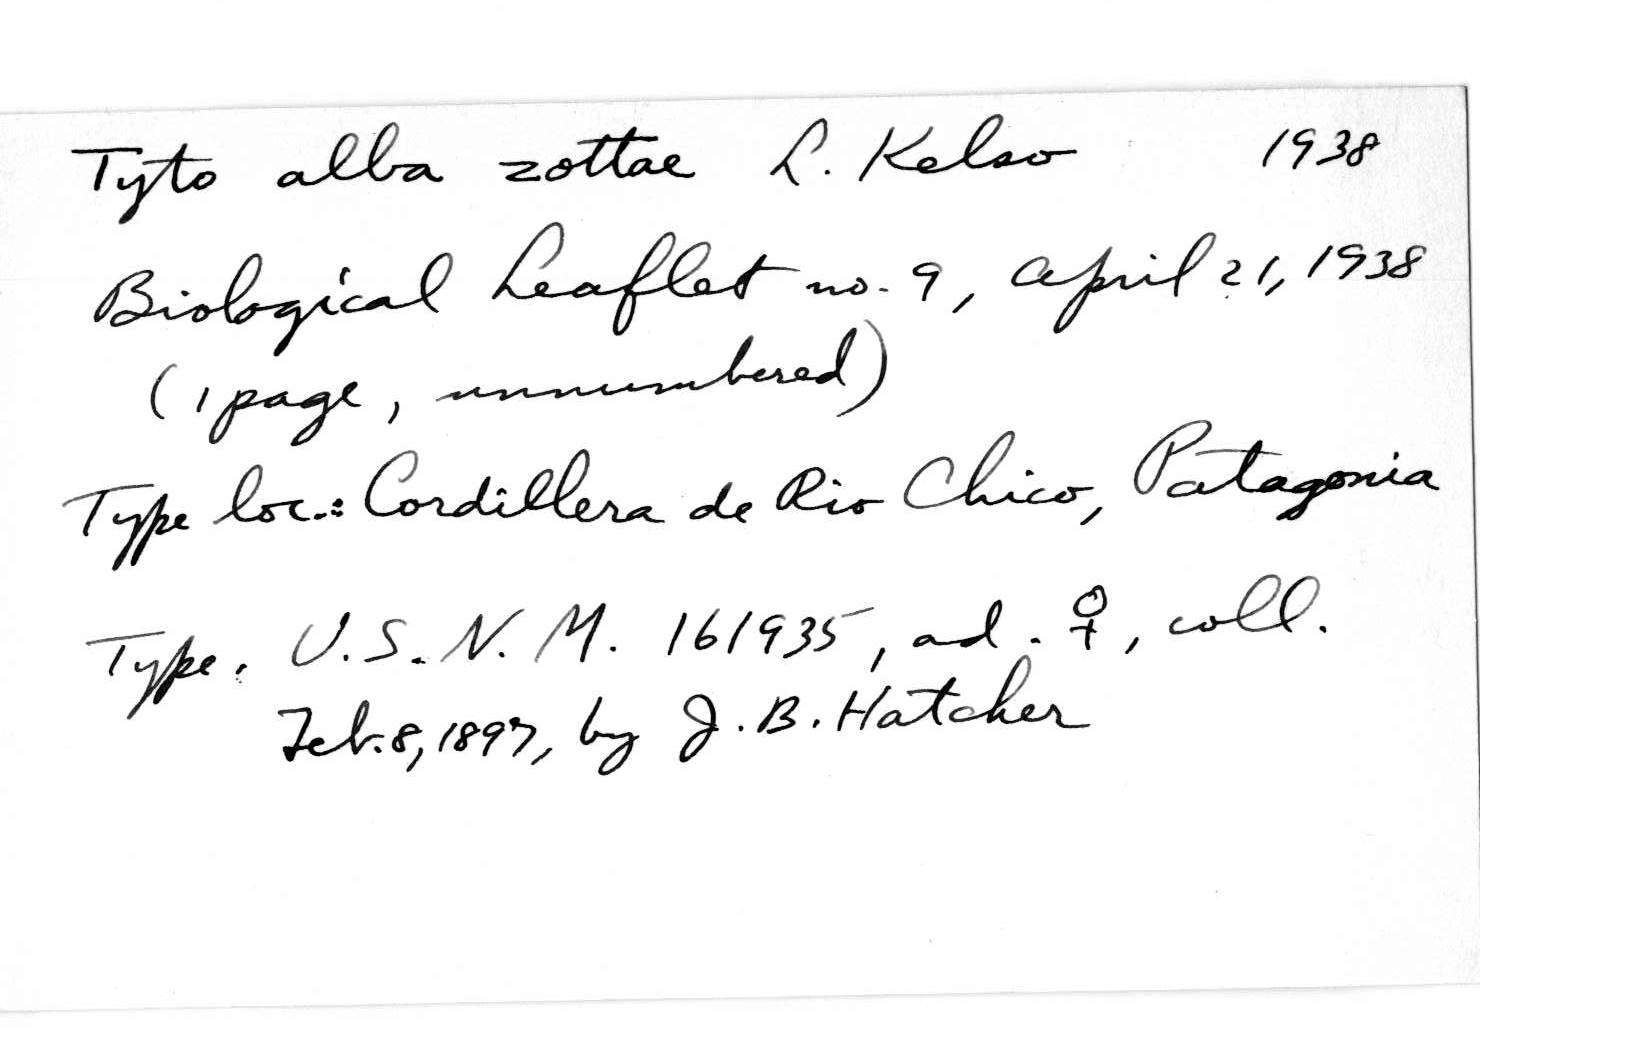 Tyto alba zottae L. Kelso 1938
Biological Leaflet no. 9, April 21, 1938
(1 page, unnumbered)
Type loc.: Cordillera de Rio Chico, Patagonia
Type. U.S.N.M. 161935, ad. ♀, coll.
Feb. 8, 1897, by J. B. Hatcher